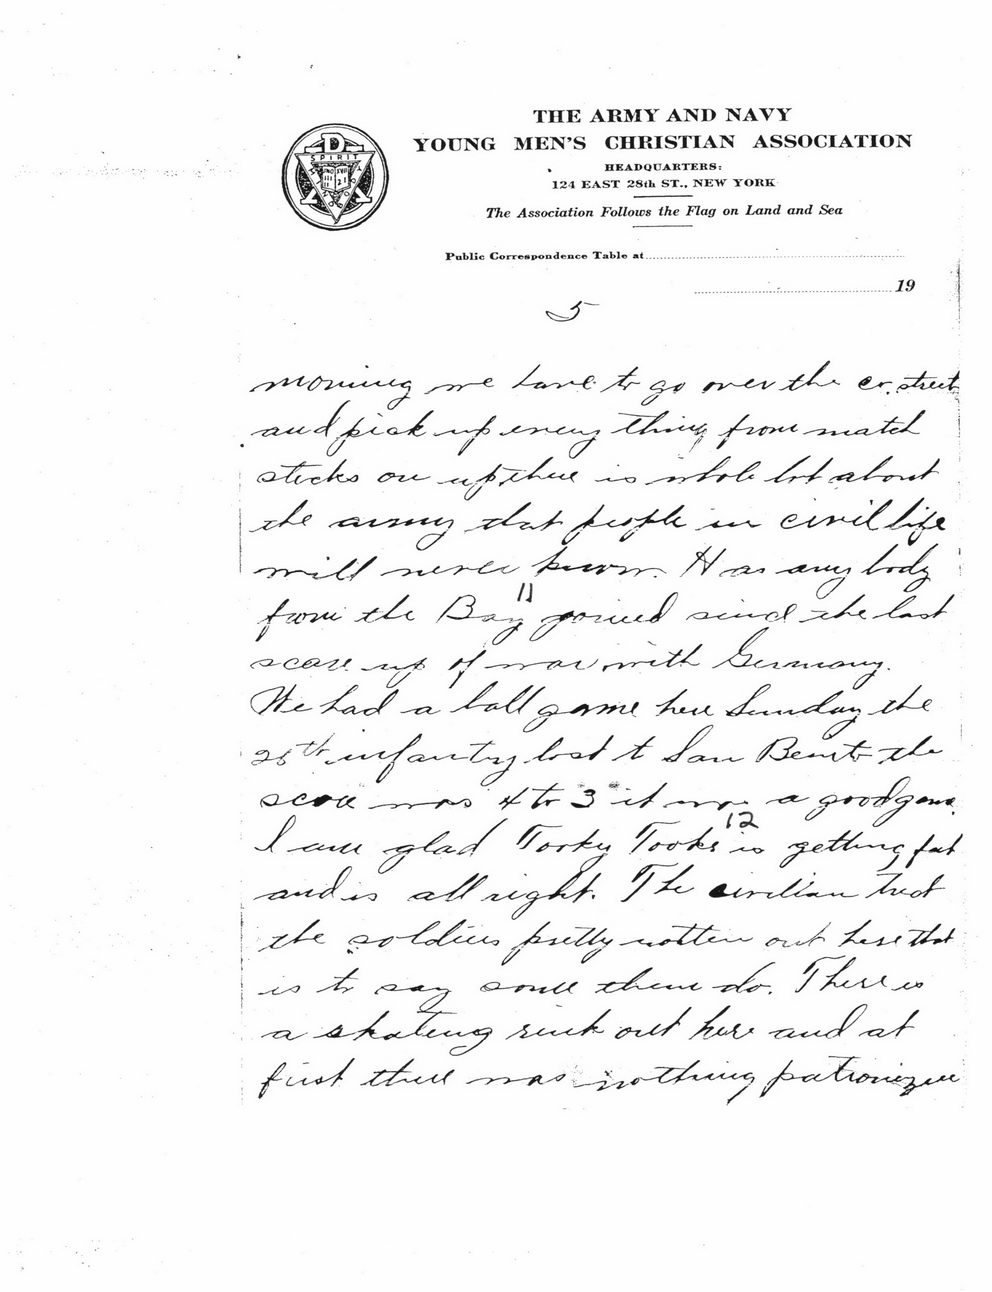 THE ARMY AND NAVY
YOUNG MEN'S CHRISTIAN ASSOCIATION
HEADQUARTERS:
124 EAST 28th ST., NEW YORK
The Association Follows the Flag on Land and Sea
Public Correspondence Table at
19
SPIRIT
5
morning we have to go over the co. street
and pick up every thing from match
sticks on up, there is whole lot about
the army that people in civil life
will never know. Has any body
11
from the Bay joined since the last
scare up of war with Germany.
We had a ball game here Sunday the
infantry lost to San Benito the
score was 4 to 3 it was a good game.
12
I am glad Tooky Tooks is getting fat
and is all right. The civilian treat
the soldiers pretty rotten out here that
is to say some them do. There is
a skating rink out here and at
first there was nothing